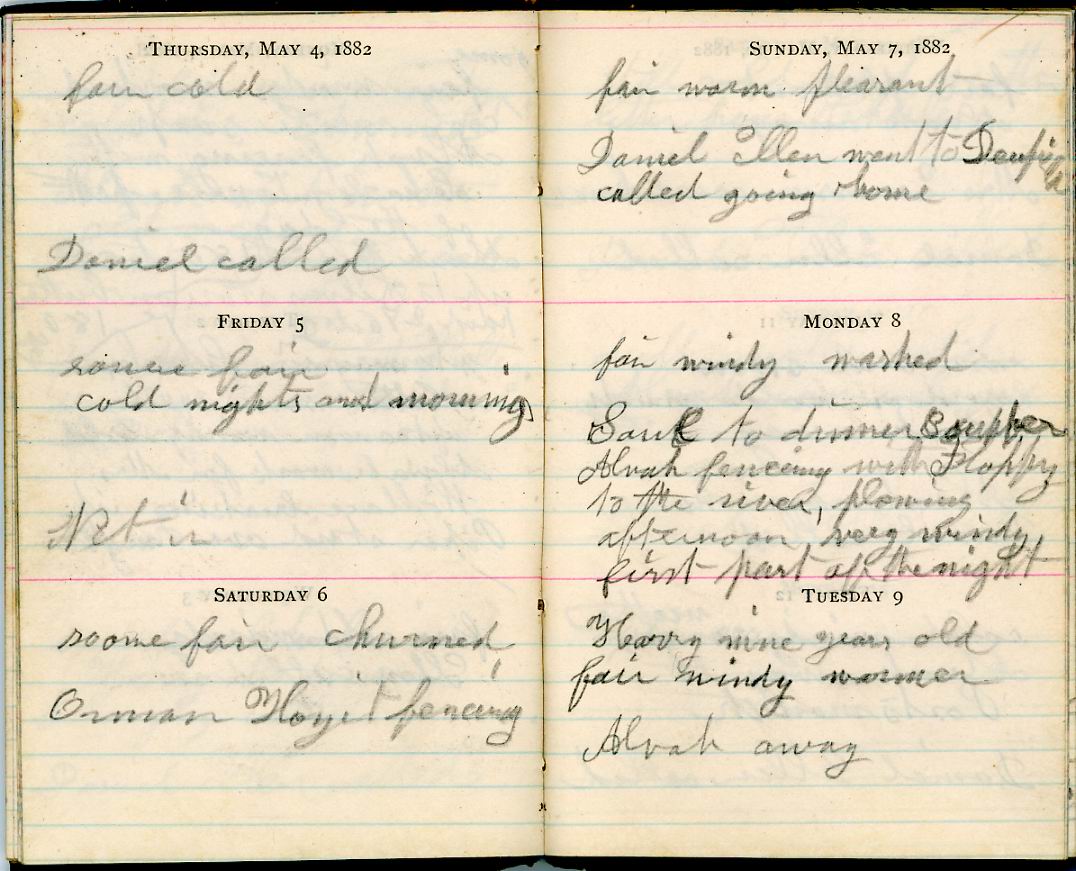 THURSDAY, MAY 4, 1882
fair cold
Daniel called
FRIDAY 5
some fair
cold nights and mornings
SATURDAY 6
some fair churned
Orman Hoyit fencing
SUNDAY, MAY 7, 1882
fair warm pleasant
Daniel Ellen went to
called going home
MONDAY 8
fair windy washed
to dinner & supper
Alvah fencing with Floppy
to the river, plowing
afternoon, very windy
first part of the night
TUESDAY 9
Harry nine years old
fair windy warmer
Alvah away